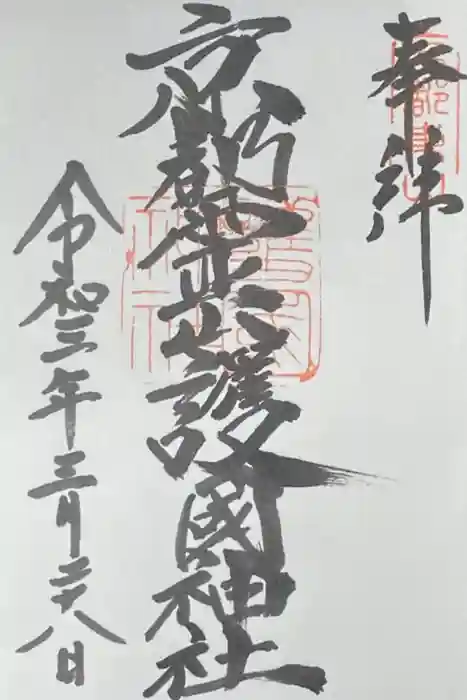 奉拜
京都霊山護國神社
令和三年三月二十八日